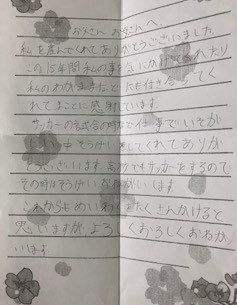 お父さん お母さんへ
私を産んでくれてありがとうございました。
この15年間私の事を気にかけてくれたり
私のわがままなどにも付き合ってく
れてまことに感謝しています。
サッカーの試合の時など仕事でいそが
しい中そうげいをしてくれてありが
とうございます。高校でもサッカーをするので
その時はそうげいおねがいします
これからもめいわくをたくさんかけると
思いますが、よろしくおねがい
いします。